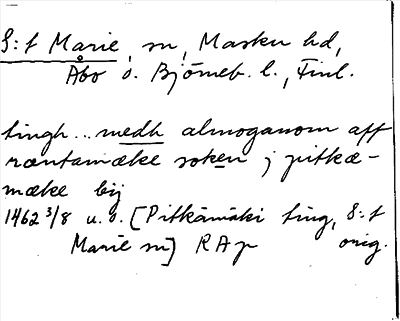 S:t Marie, sn, Masku hd,
Åbo o. Björneb. l., Finl.
tingh .. medh almoganom aff
ræntamæke soken j pitkæ-
mæke bij
1462 3/8 u.o. [Pitkämäki ting, S:t
Marie sn] RAp orig.